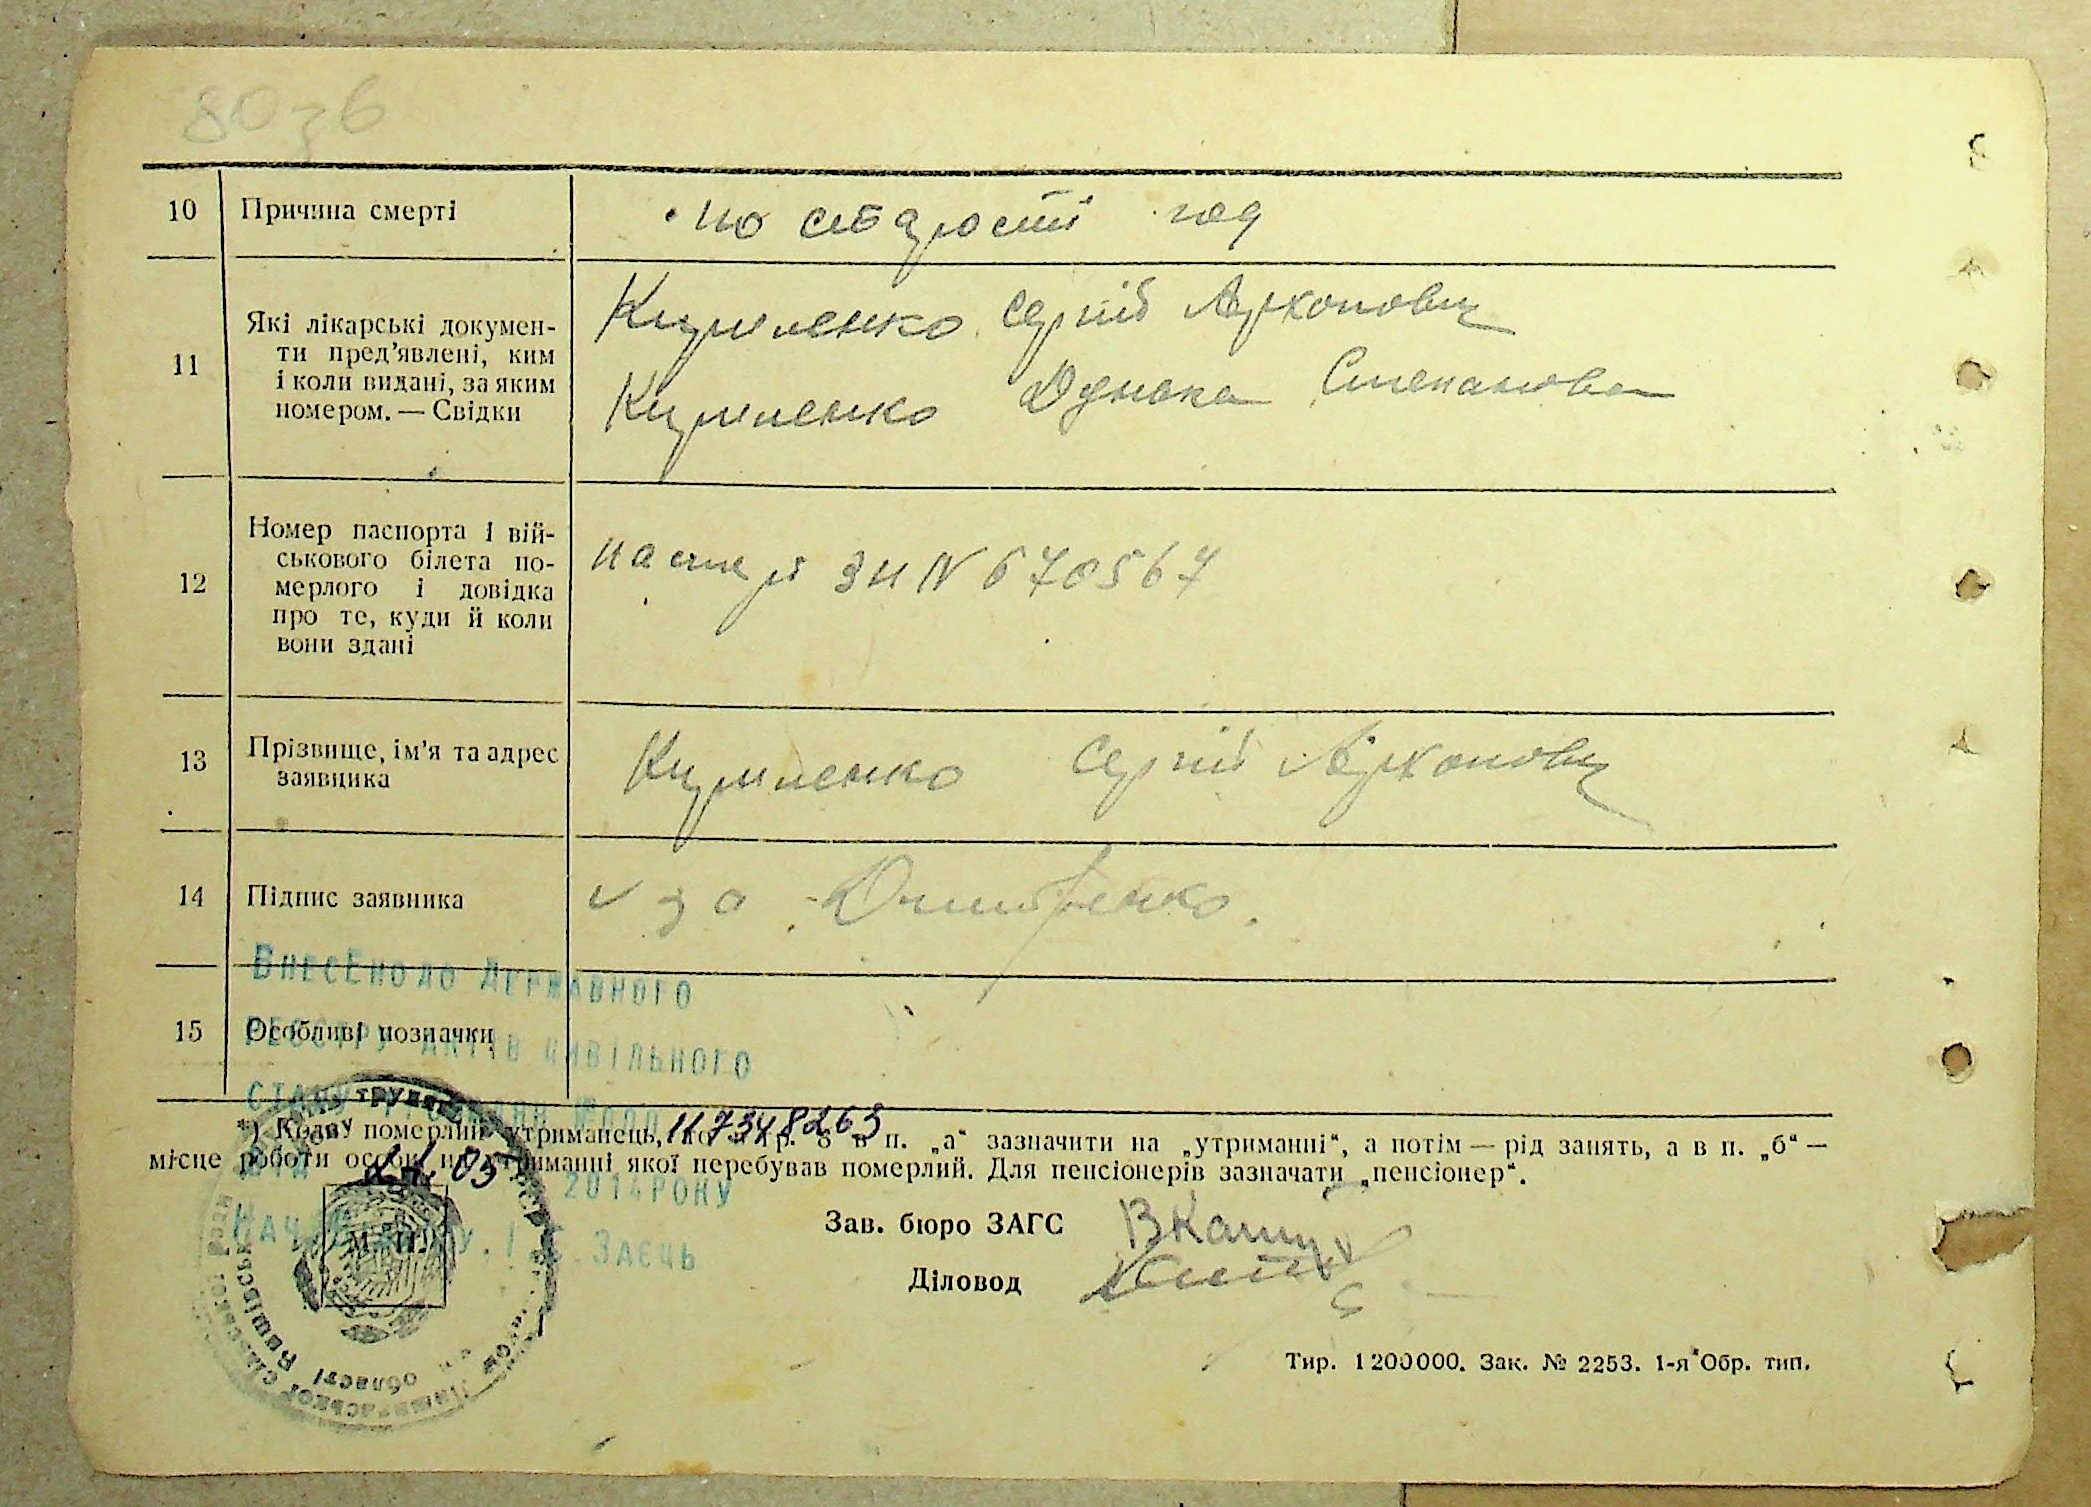 8036
10 Причина смерті по старості год
11 Які лікарські докумен-
ти пред'явлені, ким
і коли видані, за яким
номером. — Свідки
Кириленко Сергій Архопович
Кириленко Дунька Степановна
12 Номер паспорта і вій-
ськового білета по-
мерлого і довідка
про те, куди й коли
вони здані
паспорт ЗИ N 670567
13 Прізвище, ім'я та адрес
заявника
Кириленко Сергій Архопович
14 Підпис заявника
15 Особливі позначки
Внесено до Державного
реєстру актів цивільного
стану громадян
117348263
*) Коли померлий утриманець, то в гр. 8 в п. „а“ зазначити на „утриманні“, а потім — рід занять, а в п. „б“ —
місце роботи особи, на утриманні якої перебував померлий. Для пенсіонерів зазначати „пенсіонер“.
05 2014 РОКУ
Заєць
М. П.
Зав. бюро ЗАГС
Діловод
Тир. 1200000. Зак. № 2253. 1-я Обр. тип.